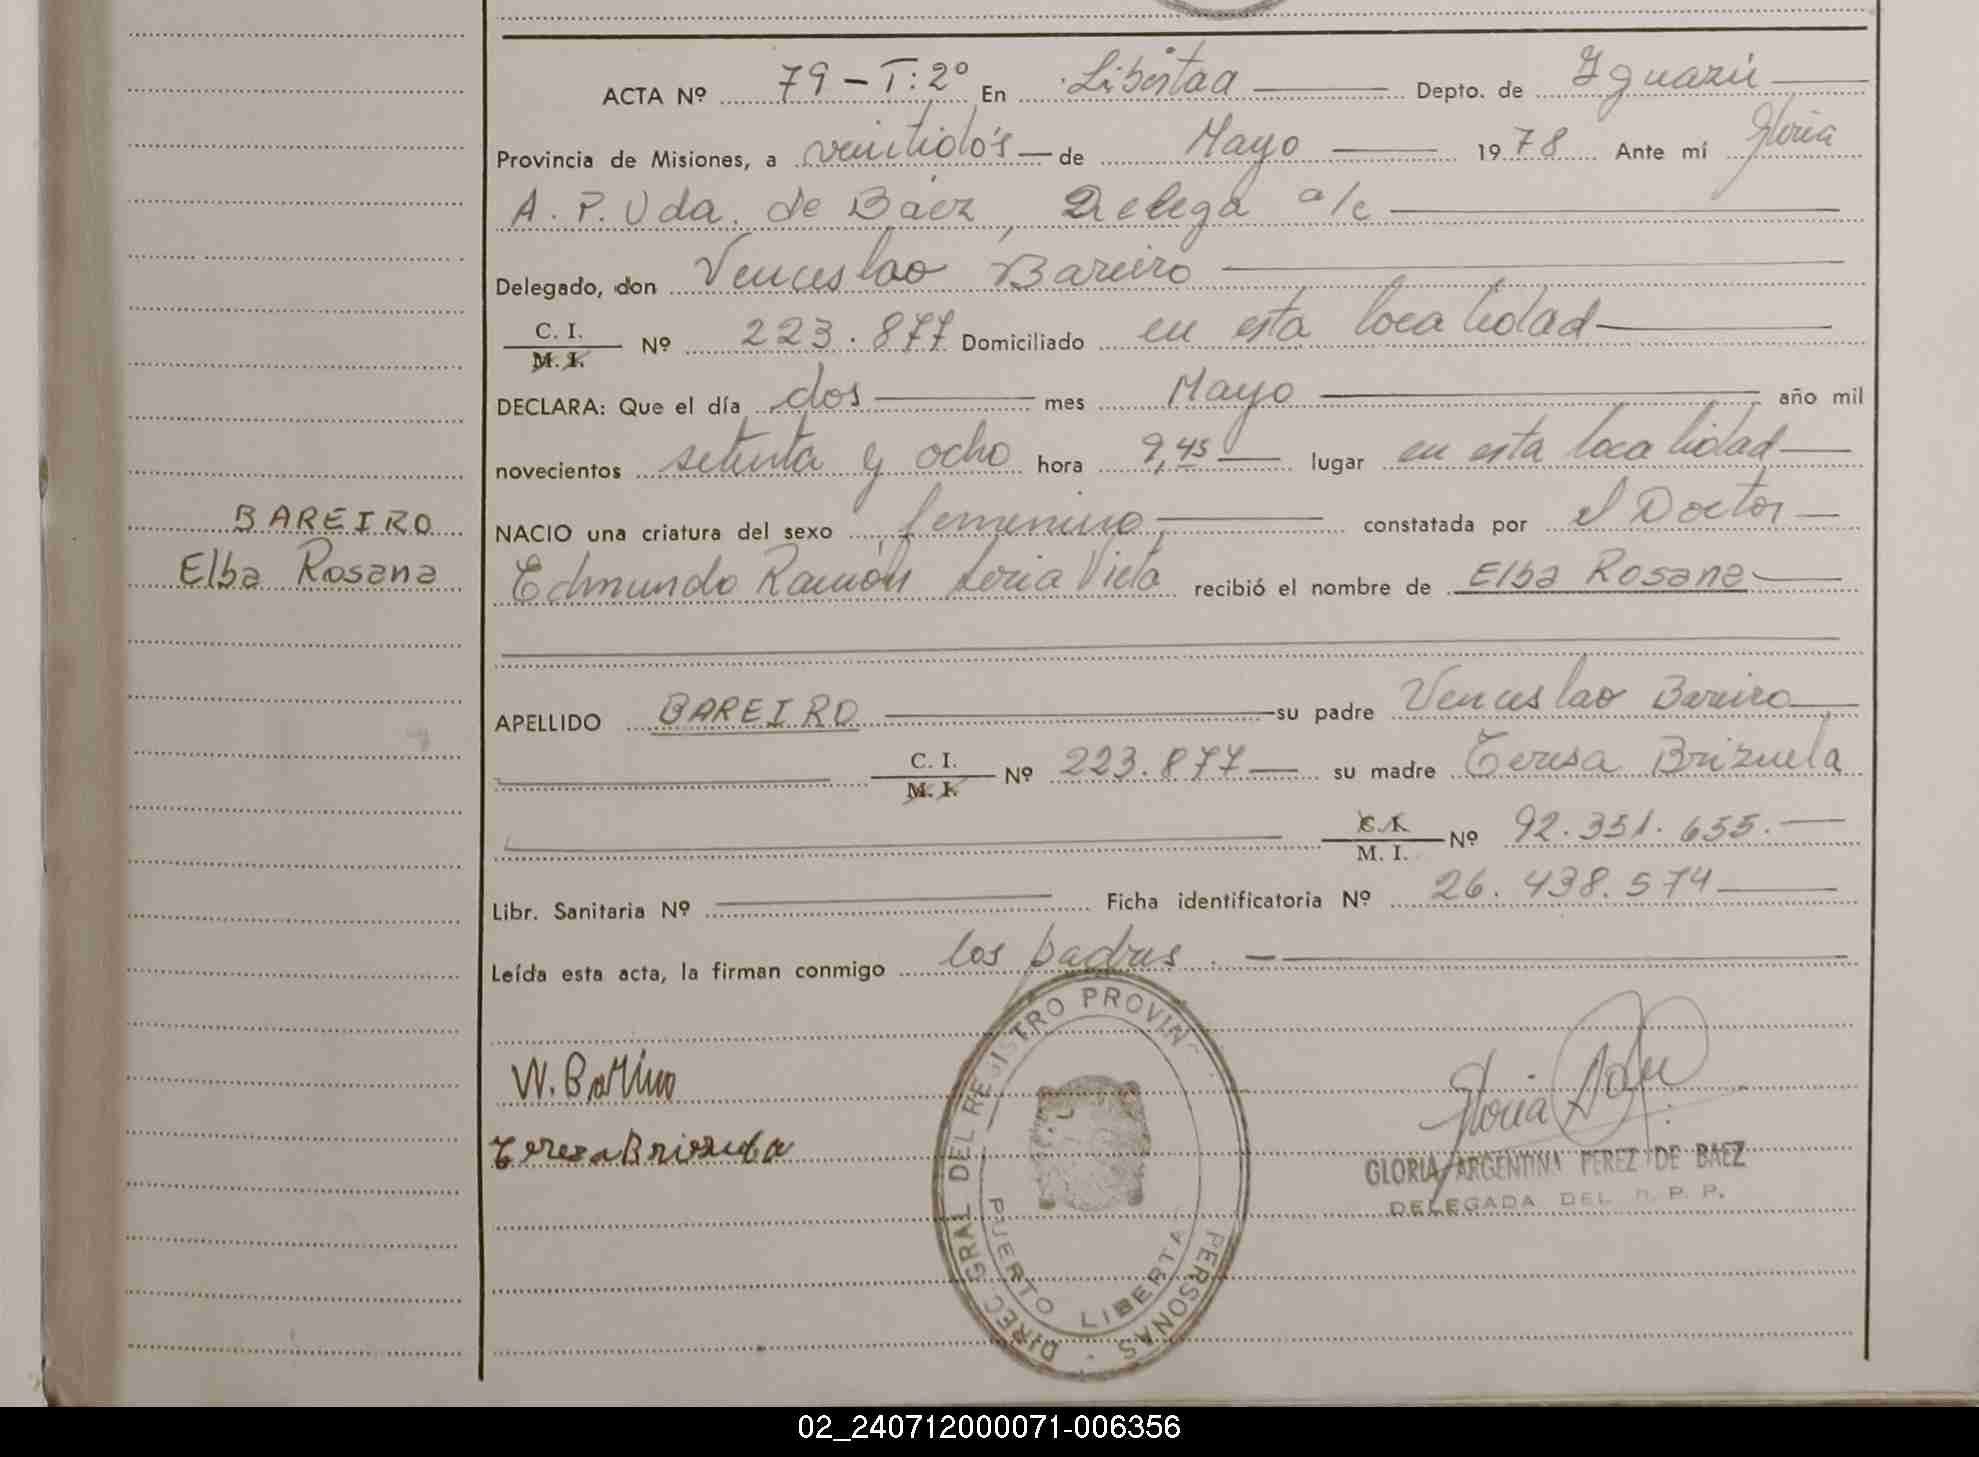 ACTA Nº 79 - T: 2º En Libertad Depto. de Iguazú
Provincia de Misiones, a veintidós de Mayo 1978 Ante mí Gloria
A. P. Vda. de Báez, Delega a/c
Delegado, don Venceslao Bareiro
C. I.
M. I. Nº 223.877 Domiciliado en esta localidad
DECLARA: Que el día dos mes Mayo año mil
novecientos setenta y ocho hora 9,45 lugar en esta localidad
NACIO una criatura del sexo femenino constatada por el Doctor
BAREIRO
Elba Rosana
Edmundo Ramón Loria Vieta recibió el nombre de Elba Rosana
APELLIDO BAREIRO su padre Venceslao Bareiro
C. I.
M. I. Nº 223.877 su madre Teresa Brizuela
C. I.
M. I. Nº 92.351.655.
Libr. Sanitaria Nº Ficha identificatoria Nº 26.438.574
Leída esta acta, la firman conmigo los padres.
W. Bareiro
Teresa Brizuela
DIREC. GRAL DEL REGISTRO PROVINC PERSONAS
PUERTO LIBERTA
Gloria
GLORIA ARGENTINA PEREZ DE BAEZ
DELEGADA DEL R. P. P.
02_240712000071-006356